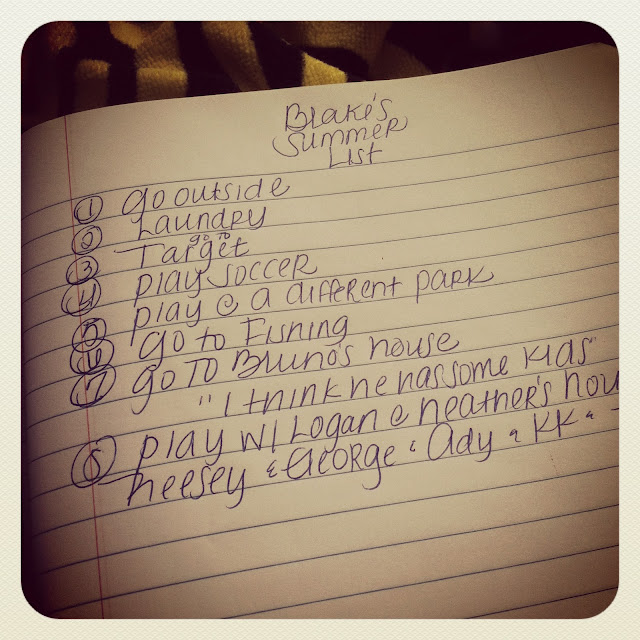 Blake's
Summer
List
① go outside
② Laundry
go to
③ Target
④ play soccer
⑤ play @ a different park
⑥ go to Fishing
⑦ go to Bruno's house
"I think he has some kids"
⑧ play w/ Logan @ heather's hou
& George & Ady & KK &